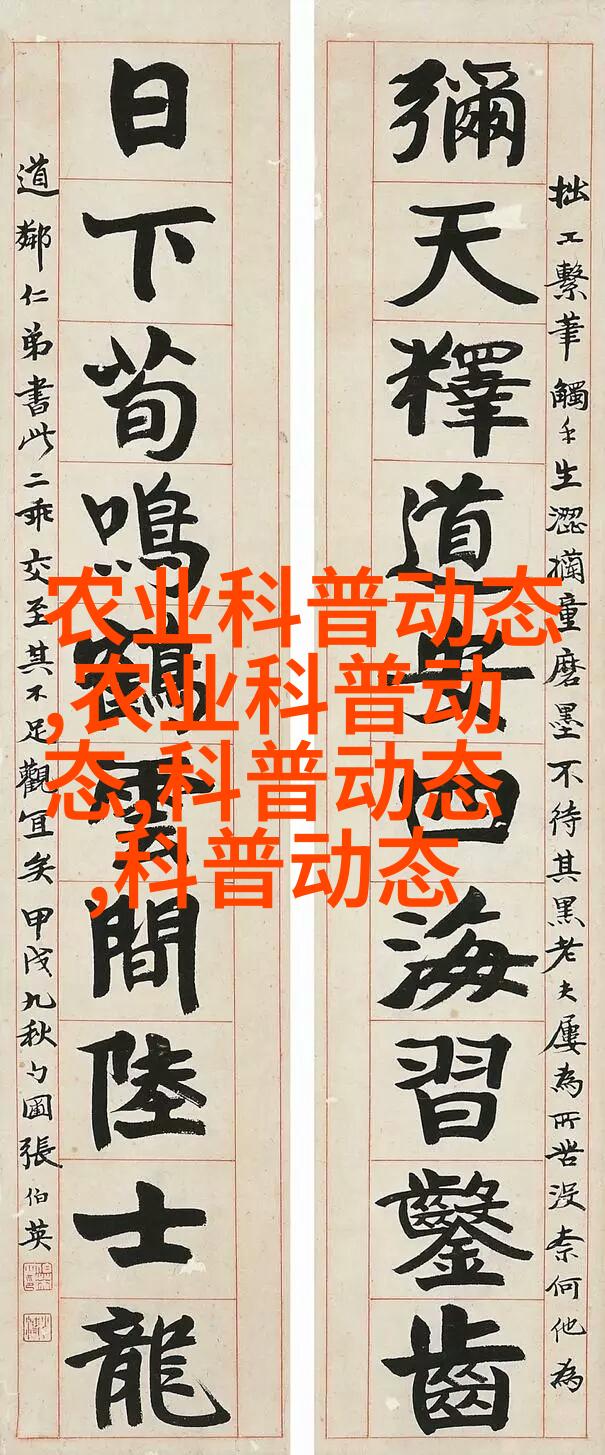 拙工繫筆觸手生澀嬾童磨墨不待其黑老夫屢為所苦沒柰何他為
彌天釋道安四海習鑿齒
日下荀鳴鶴雲間陸士龍
道鄰仁弟書此二乖交至其不足觀宜矣甲戌九秋勺圃張伯英
农业科普动态
,农业科普动
态,科普动态
,科普动态